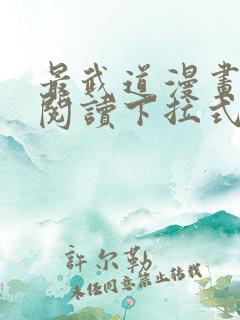 最武道漫畫
閱讀下拉式
許尔勒
未经同意禁止转载